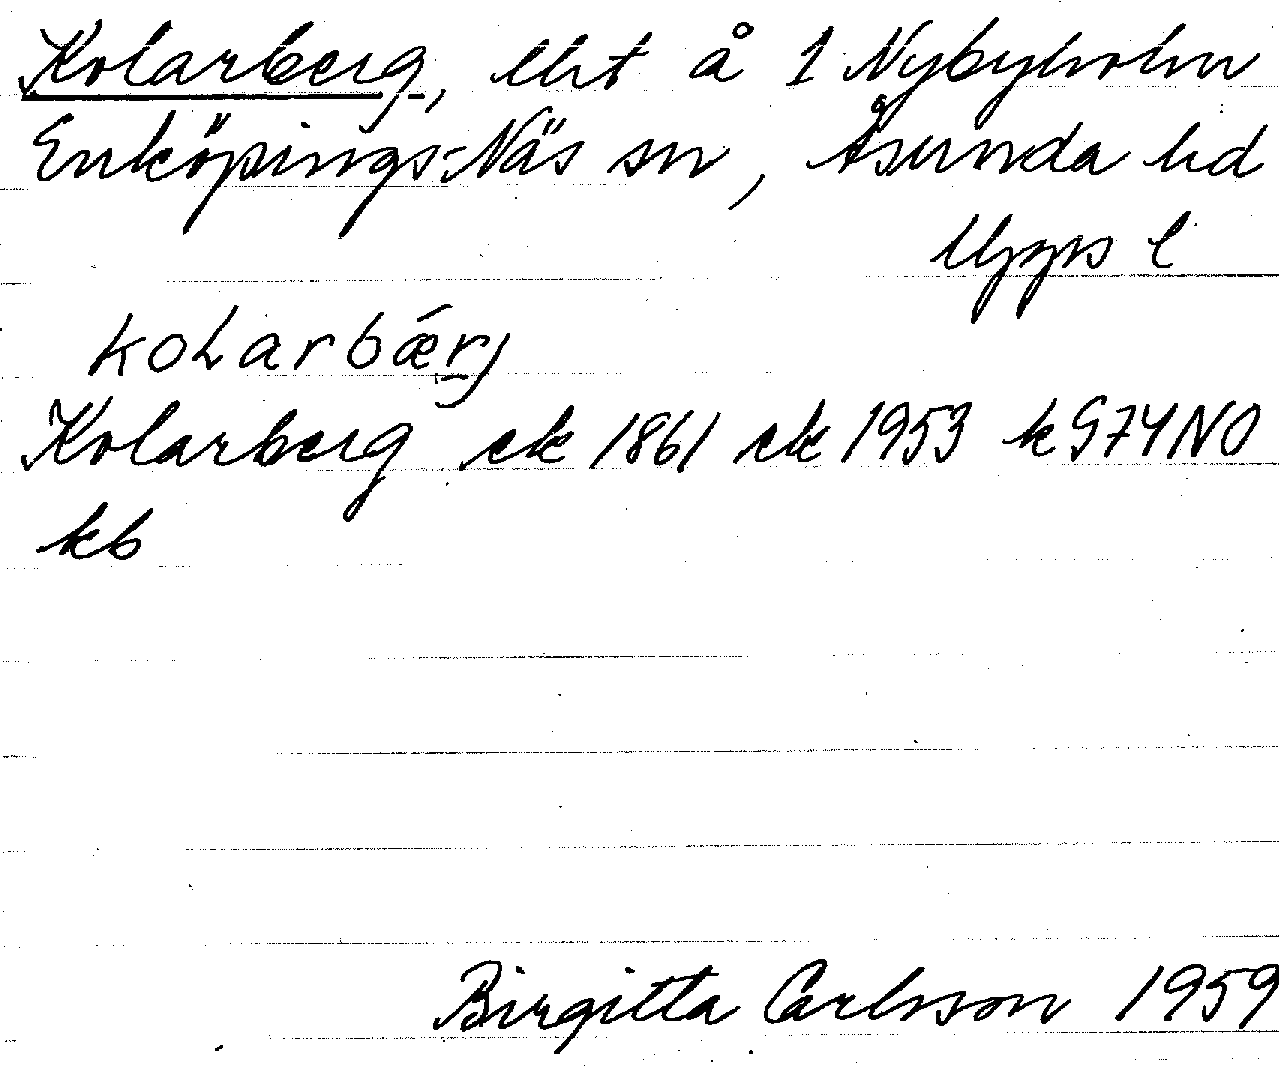 Kolarberg, lht å 1 Nybyholm
Enköpings-Näs sn, Åsunda hd
Upps l
koLarbær̲j
Kolarberg ek 1861 ek 1953 k G74NO
kb
Birgitta Carlsson 1959